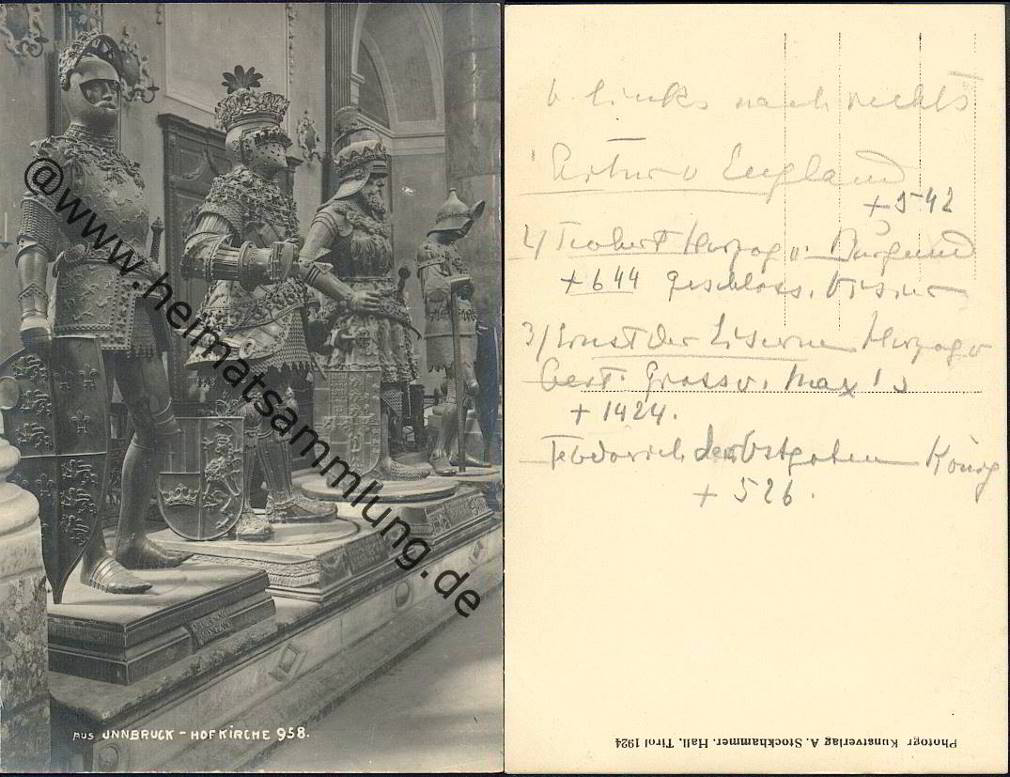 @www.heimatsammlung.de
AUS INNBRUCK - HOFKIRCHE 958.
links nach rechts
Artur v England
+ 542
2/ Teobert Herzog v. Burgund
+ 644 geschloss. Visier
3/ Ernst der Eiserne Herzog v
Grossv. Max I s
+ 1424.
Teodorich der Ostgothen König
+ 526.
Photogr. Kunstverlag A. Stockhammer, Hall, Tirol 1924